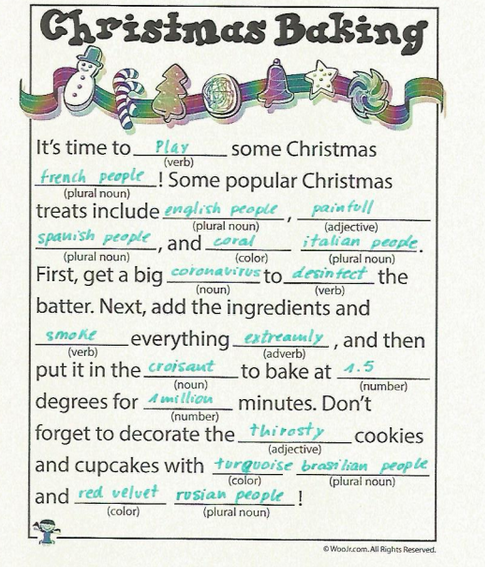 Christmas Baking
It's time to Play some Christmas
(verb)
french people! Some popular Christmas
(plural noun)
treats include english people, painfull
(plural noun) (adjective)
spanish people, and coral italian people.
(plural noun) (color) (plural noun)
First, get a big coronavirus to desinfect the
(noun) (verb)
batter. Next, add the ingredients and
smoke everything extreamly, and then
(verb) (adverb)
put it in the croisant to bake at 1.5
(noun) (number)
degrees for 1 million minutes. Don't
(number)
forget to decorate the thirosty cookies
(adjective)
and cupcakes with turquoise brasilian people
(color) (plural noun)
and red velvet rusian people!
(color) (plural noun)
© WooJr.com. All Rights Reserved.